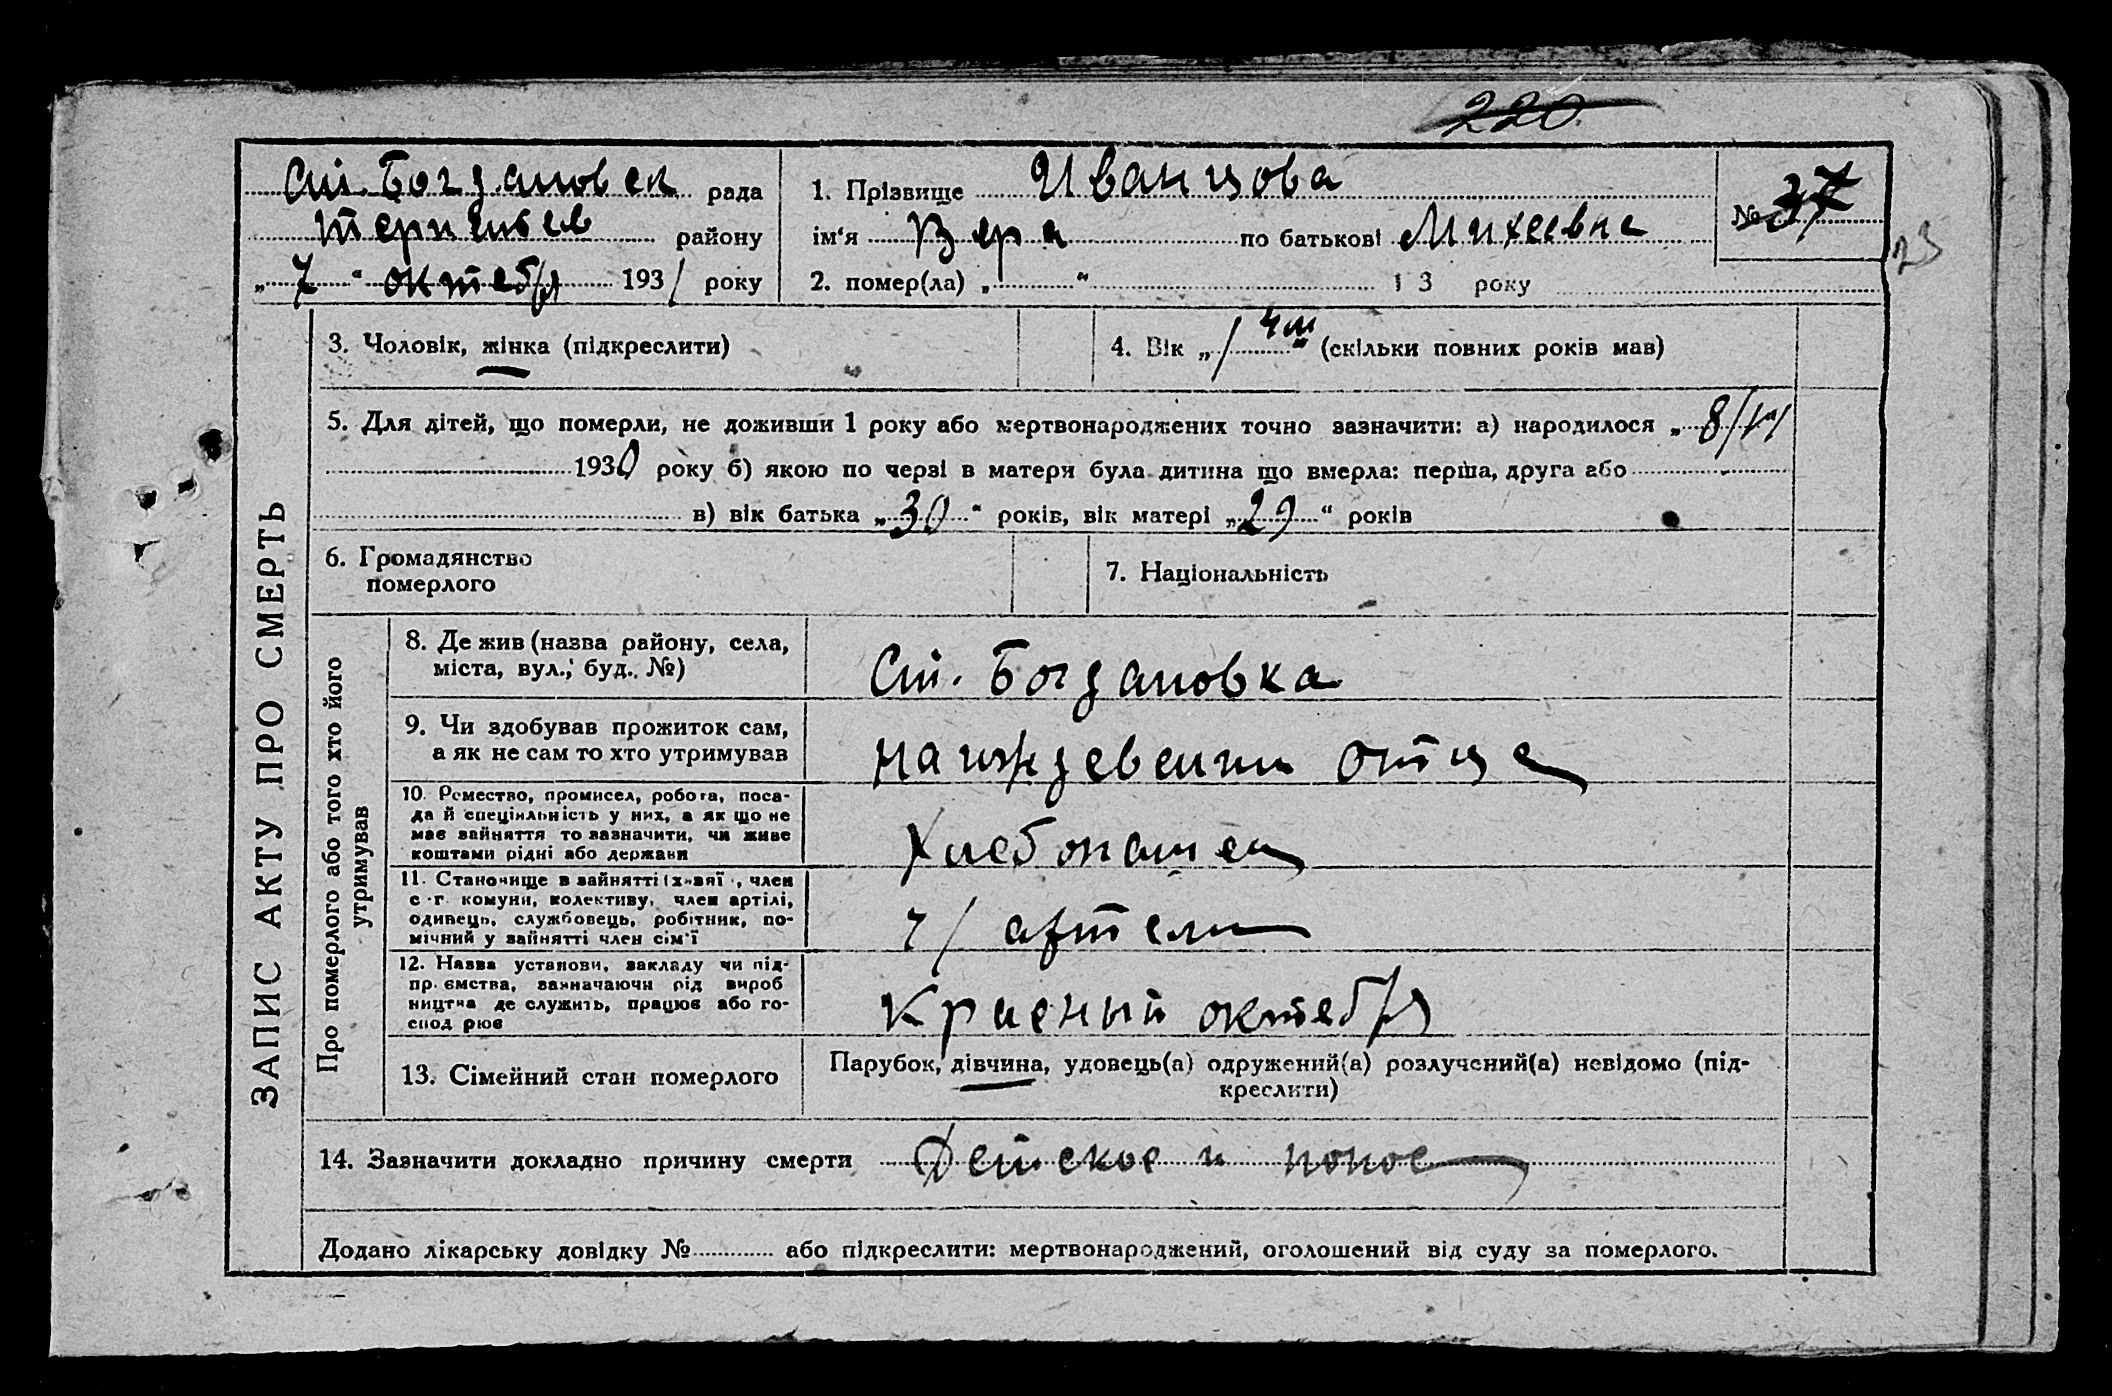 220
Ст. Богдановск рада
района району
„ 7 “ октебря 1931 року
1. Прізвище Иванцова
ім‘я Вера по батькові Михеевна
2. помер(ла) „ “ 1 3 року
№ 37
23
ЗАПИС АКТУ ПРО СМЕРТЬ
3. Чоловік, жінка (підкреслити)
4. Вік „ 1 4 м “ (скільки повних років мав)
5. Для дітей, що померли, не доживши 1 року або мертвонароджених точно зазначити: а) народилося „ 8/
1930 року б) якою по черзі в матери була дитина що вмерла: перша, друга або
в) вік батька „30“ років, вік матері „29“ років
6. Громадянство
померлого
7. Національність
Про померлого або того хто його
утримував
8. Де жив (назва району, села,
міста, вул., буд. №)
Ст. Богдановка
9. Чи здобував прожиток сам,
а як не сам то хто утримував
на иждевении отца
10. Ремество, промисел, робота, поса-
да й спеціяльність у них, а як що не
має зайняття то зазначити, чи живе
коштами рідні або держави
Хлебопашец
11. Становище в зайнятті (хазяї, член
с.-г. комуни, колективу, член артілі,
одинець, службовець, робітник, по-
мічний у зайнятті член сім'ї
ч/ артели
12. Назва установи, закладу чи під-
приємства, зазначаючи рід вироб
ництва де служить, працює або го-
спод рює
Красный октебря
13. Сімейний стан померлого
Парубок, дівчина, удовець(а) одружений(а) розлучений(а) невідомо (під-
креслити)
14. Зазначити докладно причину смерти Детское и понос
Додано лікарську довідку № або підкреслити: мертвонароджений, оголошений від суду за померлого.